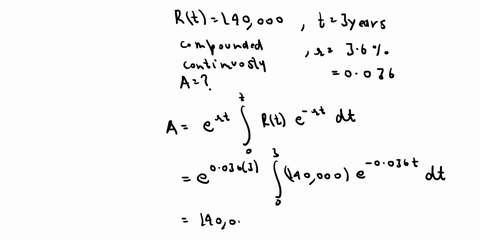 R(t) = 140,000 , t = 3 years
compounded , r = 3.6 %.
continuosly = 0.036
A = ?
A = e^{rt} ∫_0^t R(t) e^{-rt} dt
= e^{0.036(3)} ∫_0^3 (140,000) e^{-0.036t} dt
= 140,0.